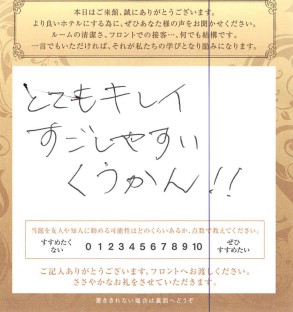 本日はご来館、誠にありがとうございます。
より良いホテルにする為に、ぜひあなた様の声をお聞かせください。
ルームの清潔さ、フロントでの接客…、何でも結構です。
一言でもいただければ、それが私たちの学びとなり励みになります。
とてもキレイ
すごしやすい
くうかん!!
当館を友人や知人に勧める可能性はどのくらいあるか、点数で教えてください。
すすめたくない 0 1 2 3 4 5 6 7 8 9 10 ぜひすすめたい
ご記入ありがとうございます。フロントへお渡しください。
ささやかなお礼をさせていただきます。
書ききれない場合は裏面へどうぞ